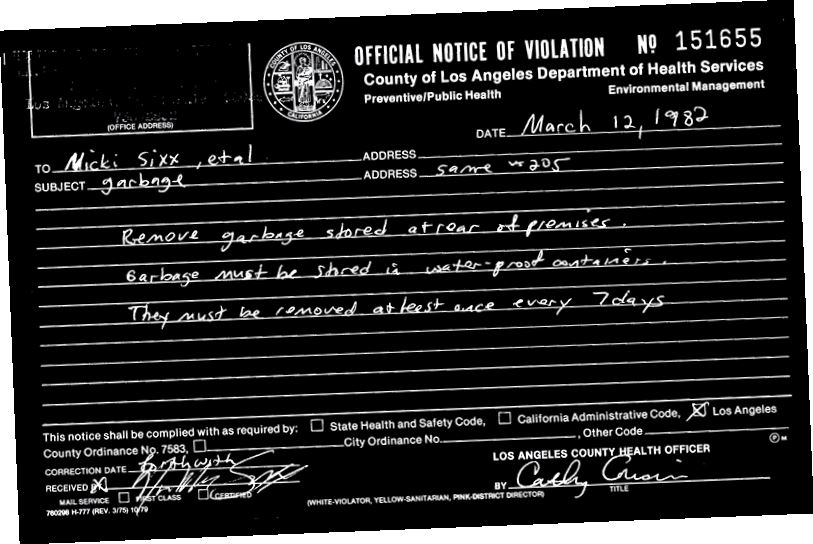 OFFICIAL NOTICE OF VIOLATION Nº 151655
County of Los Angeles Department of Health Services
Preventive/Public Health Environmental Management
COUNTY OF LOS ANGELES
CALIFORNIA
(OFFICE ADDRESS)
DATE March 12, 1982
TO Micki Sixx, etal ADDRESS
SUBJECT garbage ADDRESS same #205
Remove garbage stored at rear of premises.
Garbage must be stored in water-proof containers.
They must be removed at least once every 7 days
This notice shall be complied with as required by: ☐ State Health and Safety Code, ☐ California Administrative Code, ☒ Los Angeles
County Ordinance No. 7583, ☐ City Ordinance No. , Other Code
CORRECTION DATE forthwith
LOS ANGELES COUNTY HEALTH OFFICER
RECEIVED BY
BY Cathy TITLE
MAIL SERVICE ☐ FIRST CLASS ☐ CERTIFIED
(WHITE-VIOLATOR, YELLOW-SANITARIAN, PINK-DISTRICT DIRECTOR)
760298 H-777 (REV. 3/75) 10/79